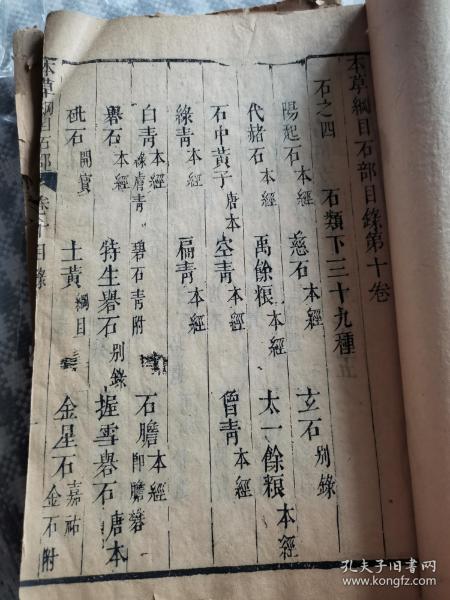 本草綱目石部目錄第十卷
石之四 石類下三十九種
陽起石本經 慈石本經 玄石別錄
代赭石本經 禹餘粮本經 太一餘粮本經
石中黃子唐本 空青本經 曾青本經
綠青本經 扁青本經
白青本經綠膚青 碧石青附 石膽本經即膽礬
礜石本經 特生礜石別錄 握雪礜石唐本
砒石開寶 土黃綱目 金星石嘉祐金石附
本草綱目石部 卷十目錄
孔夫子旧书网
www.kongfz.com